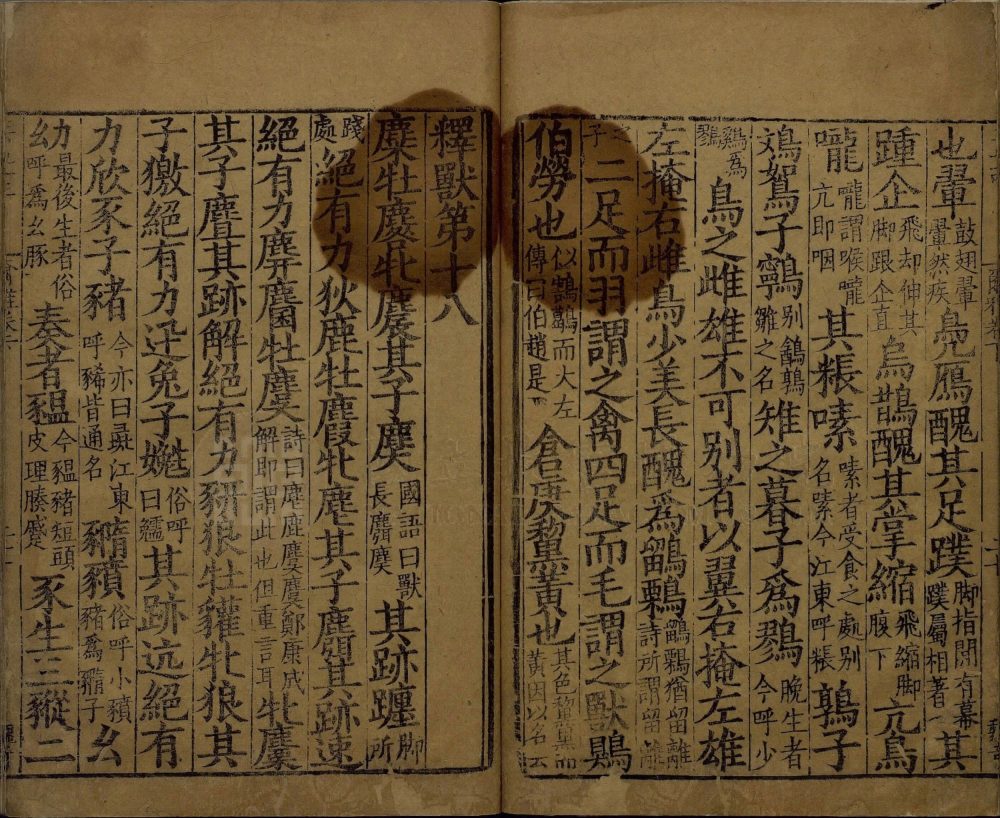 也翬鼓翅翬翬然疾鳧鴈醜其足蹼脚指間有幕蹼屬相著其
踵企飛却伸其脚跟企直烏鵲醜其掌縮飛縮脚腹下亢鳥
嚨嚨謂喉嚨亢即咽其粻嗉嗉者受食之處别名嗉今江東呼粻鶉子
鳼鴽子鸋别鷯鶉雛之名雉之暮子爲鷚晚生者今呼少
雞爲鷚鳥之雌雄不可别者以翼右掩左雄
左掩右雌鳥少美長醜爲鶹鷅鶹鷅猶留離詩所謂留離
子二足而羽謂之禽四足而毛謂之獸鶪
伯勞也似鶷鶡而大左傳曰伯趙是倉庚黧黄也其色黧黑而黄因以名云
釋獸第十八
麋牡麔牝麎其子䴠國語曰獸長麛䴠其跡躔脚所
踐處絕有力狄鹿牡麚牝麀其子麛其跡速
絕有力䴪麕牡麌詩曰麀鹿麌麌鄭康成解即謂此也但重言耳牝麜
其子麆其跡解絕有力豜狼牡獾牝狼其
子獥絕有力迅兔子嬎俗呼曰其跡迒絕有
力欣豕子豬今亦曰彘江東呼豨皆通名䝐豶俗呼小豶豬爲䝐子幺
幼最後生者俗呼爲幺豚奏者豱今豱豬短頭皮理腠蹙豕生三豵二